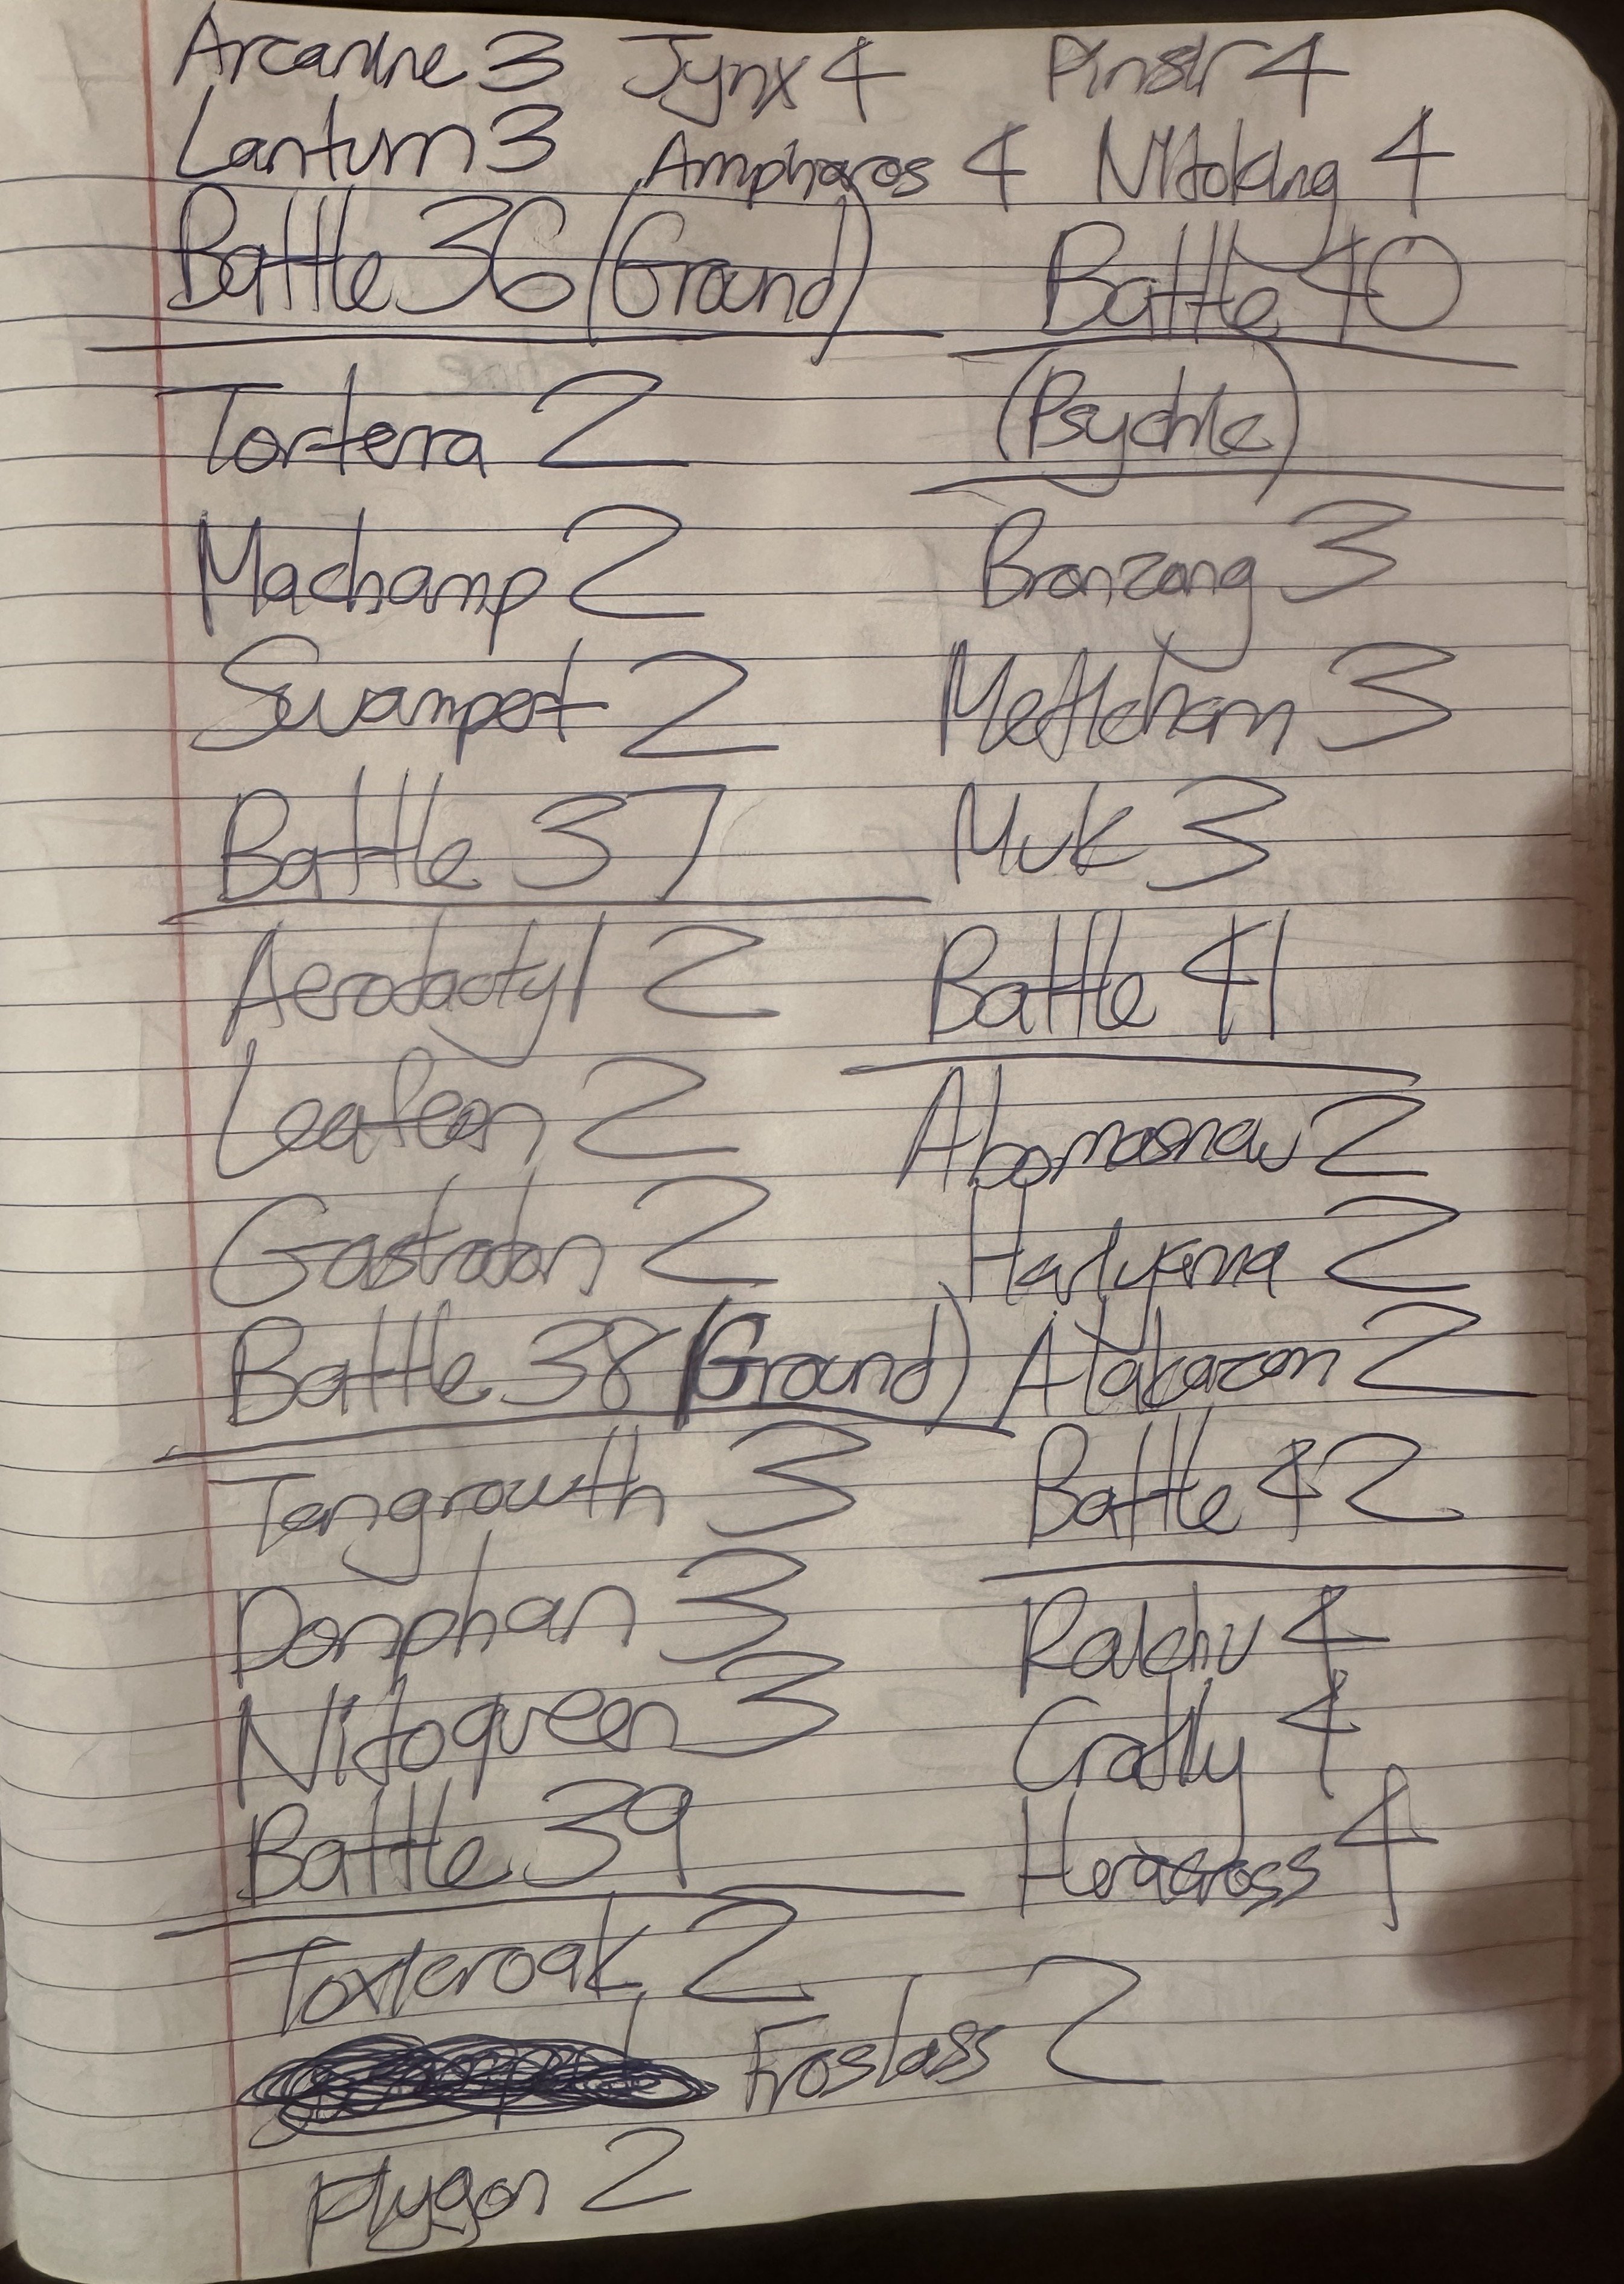 Arcanine 3 Jynx 4 Pinsir 4
Lanturn 3 Ampharos 4 Nidoking 4
Battle 36 (Ground)
Torterra 2
Machamp 2
Swampert 2
Battle 37
Aerodactyl 2
Leafeon 2
Gastrodon 2
Battle 38 (Ground)
Tangrowth 3
Donphan 3
Nidoqueen 3
Battle 39
Toxicroak 2
Froslass 2
Flygon 2
Battle 40
(Psychic)
Bronzong 3
Medicham 3
Muk 3
Battle 41
Abomasnow 2
Hariyama 2
Alakazam 2
Battle 42
Raichu 4
Cradily 4
Heracross 4